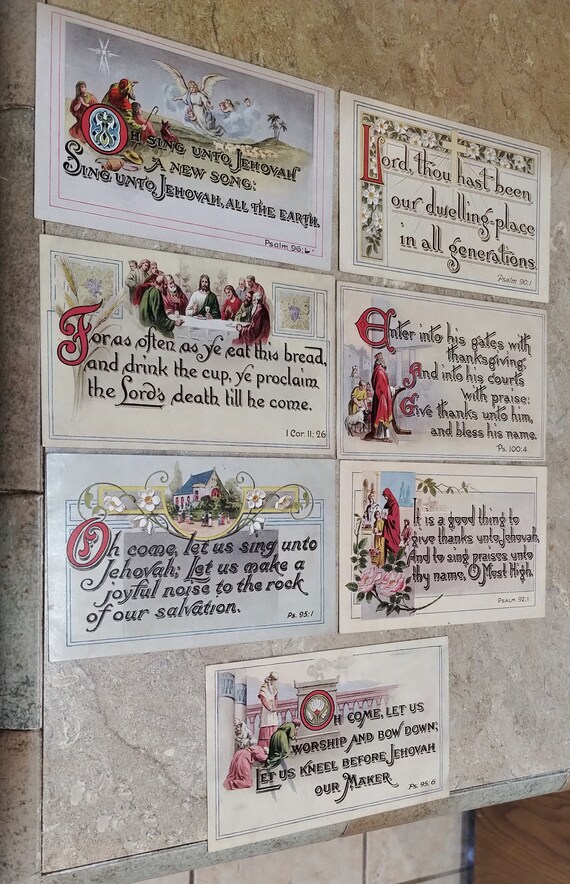 Oh sing unto Jehovah
a new song:
Sing unto Jehovah, all the earth.
Psalm 96:
Lord, thou hast been
our dwelling-place
in all generations.
Psalm 90:1
For as often as ye eat this bread,
and drink the cup, ye proclaim
the Lord's death till he come.
1 Cor. 11:26
Enter into his gates with
thanksgiving,
And into his courts
with praise:
Give thanks unto him,
and bless his name.
Ps. 100:4
Oh come, let us sing unto
Jehovah; Let us make a
joyful noise to the rock
of our salvation.
Ps. 95:1
It is a good thing to
give thanks unto Jehovah,
And to sing praises unto
thy name, O Most High.
Psalm 92:1
Oh come, let us
worship and bow down;
Let us kneel before Jehovah
our Maker
Ps. 95:6